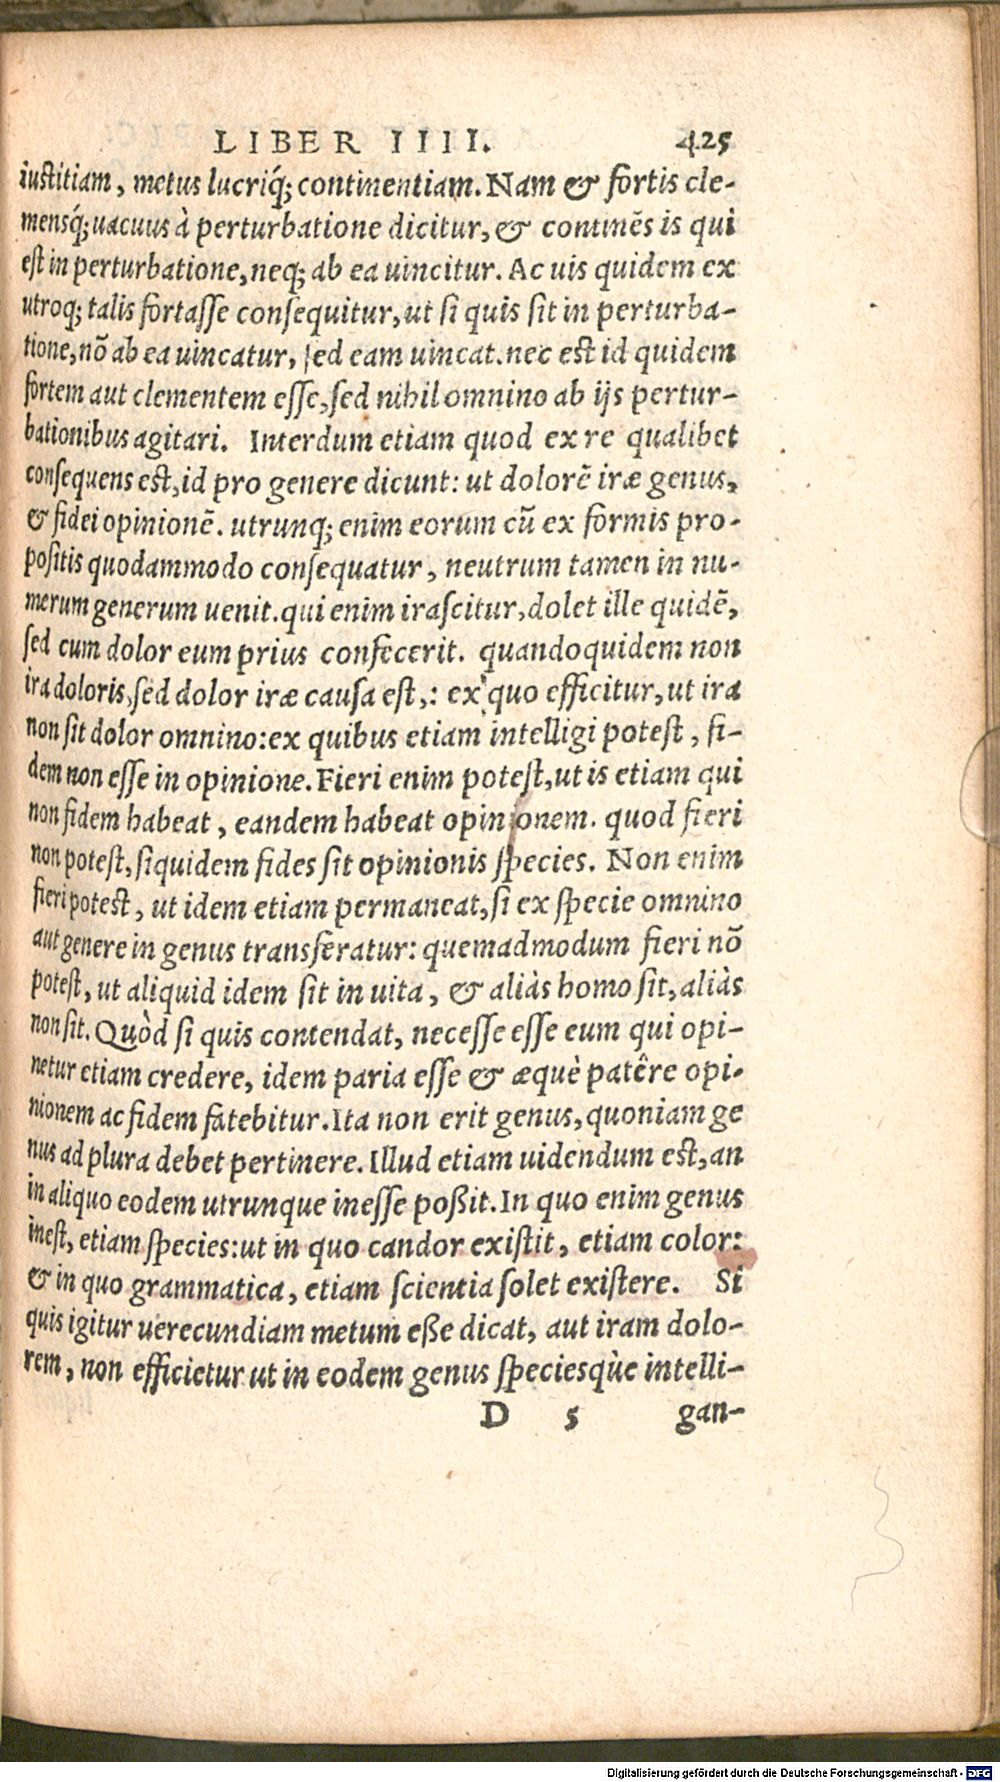 LIBER IIII. 425
iustitiam, metus lucriq́; continentiam. Nam & fortis cle-
mensq́; uacuus à perturbatione dicitur, & continẽs is qui
est in perturbatione, neq; ab ea uincitur. Ac uis quidem ex
utroq; talis fortasse consequitur, ut si quis sit in perturba-
tione, nõ ab ea uincatur, sed eam uincat. nec est id quidem
fortem aut clementem esse, sed nihil omnino ab ijs pertur-
bationibus agitari. Interdum etiam quod ex re qualibet
consequens est, id pro genere dicunt: ut dolorẽ iræ genus,
& fidei opinionẽ. utrunq; enim eorum cũ ex formis pro-
positis quodammodo consequatur, neutrum tamen in nu-
merum generum uenit. qui enim irascitur, dolet ille quidẽ,
sed cum dolor eum prius confecerit. quandoquidem non
ira doloris, sed dolor iræ causa est,: ex quo efficitur, ut ira
non sit dolor omnino: ex quibus etiam intelligi potest, fi-
dem non esse in opinione. Fieri enim potest, ut is etiam qui
non fidem habeat, eandem habeat opinionem. quod fieri
non potest, siquidem fides sit opinionis species. Non enim
fieri potest, ut idem etiam permaneat, si ex specie omnino
aut genere in genus transferatur: quemadmodum fieri nõ
potest, ut aliquid idem sit in uita, & aliàs homo sit, aliàs
non sit. Quòd si quis contendat, necesse esse eum qui opi-
netur etiam credere, idem paria esse & æquè patêre opi-
nionem ac fidem fatebitur. Ita non erit genus, quoniam ge
nus ad plura debet pertinere. Illud etiam uidendum est, an
in aliquo eodem utrunque inesse poßit. In quo enim genus
inest, etiam species: ut in quo candor existit, etiam color:
& in quo grammatica, etiam scientia solet existere. Si
quis igitur uerecundiam metum eße dicat, aut iram dolo-
rem, non efficietur ut in eodem genus speciesq̀ue intelli-
D 5 gan-
Digitalisierung gefördert durch die Deutsche Forschungsgemeinschaft - DFG